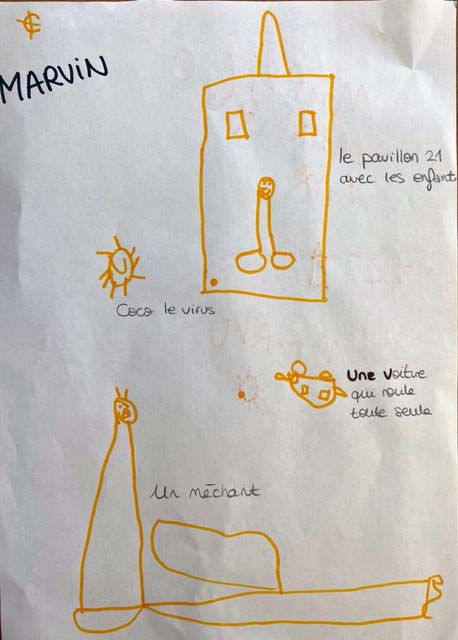 MARVIN
le pavillon 21
avec les enfant
Coco le virus
Une voiture
qui roule
toute seule
Un méchant